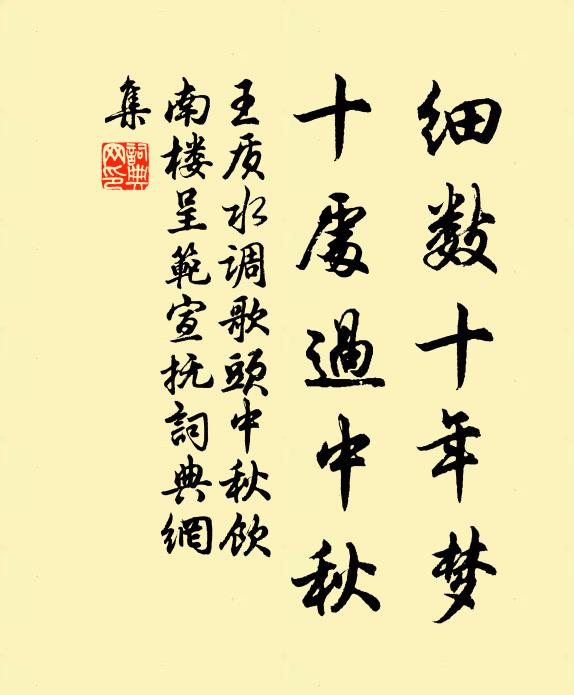 细数十年梦
十处過中秋
王质水调歌頭中秋饮
南楼呈範宣抚詞典網
集
詞典
网印